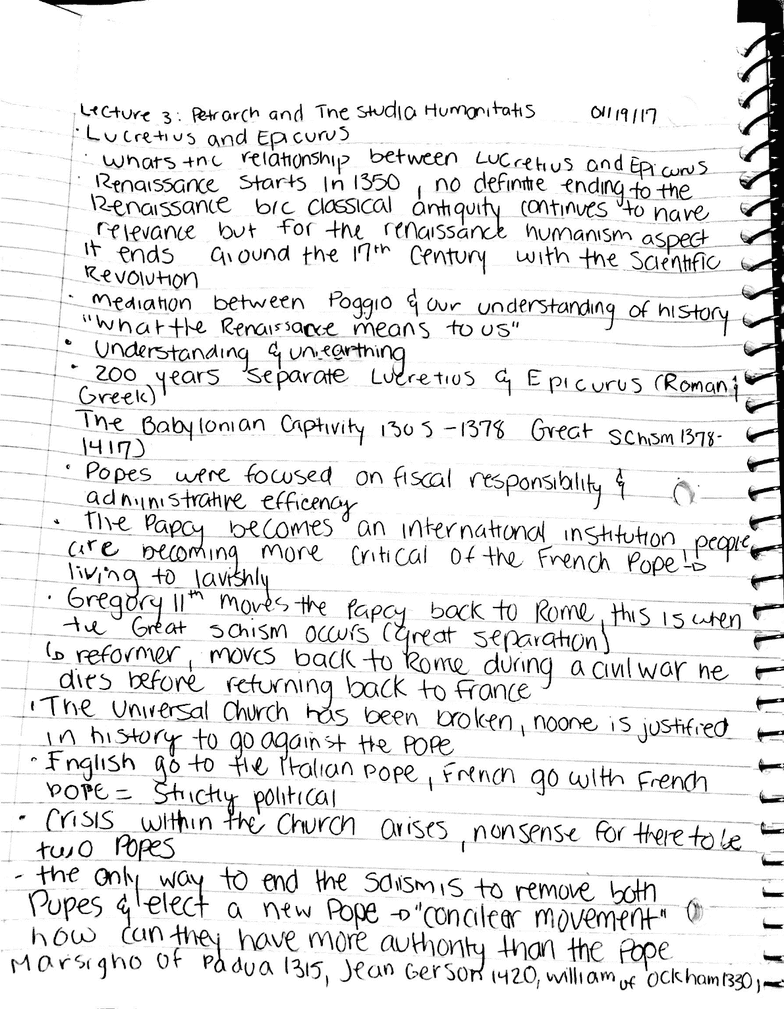 Lecture 3: Petrarch and The Studia Humanitatis 01/19/17
· Lucretius and Epicurus
· whats the relationship between Lucretius and Epicurus
· Renaissance starts in 1350, no definite ending to the
Renaissance b/c classical antiquity continues to have
relevance but for the renaissance humanism aspect
it ends around the 17th Century with the Scientific
Revolution
· mediation between Poggio & our understanding of history
"what the Renaissance means to us"
· Understanding & unearthing
· 200 years separate Lucretius & Epicurus (Roman &
Greek)
The Babylonian Captivity 1305-1378 Great Schism 1378-
1417)
· Popes were focused on fiscal responsibility &
administrative efficency
· The Papcy becomes an international institution, people
are becoming more critical of the French Pope ↳
living to lavishly
· Gregory 11th moves the Papcy back to Rome, this is when
the Great schism occurs (great separation)
↳ reformer, moves back to Rome during a civil war he
dies before returning back to France
· The Universal Church has been broken, noone is justified
in history to go against the Pope
· English go to the Italian pope, French go with French
pope = Strictly political
· Crisis within the Church arises, nonsense for there to be
two Popes
- the only way to end the schism is to remove both
Popes & elect a new Pope → "concileer movement"
how can they have more authority than the Pope
Marsigho of Padua 1315, Jean Gerson 1420, william of Ockham 1330,